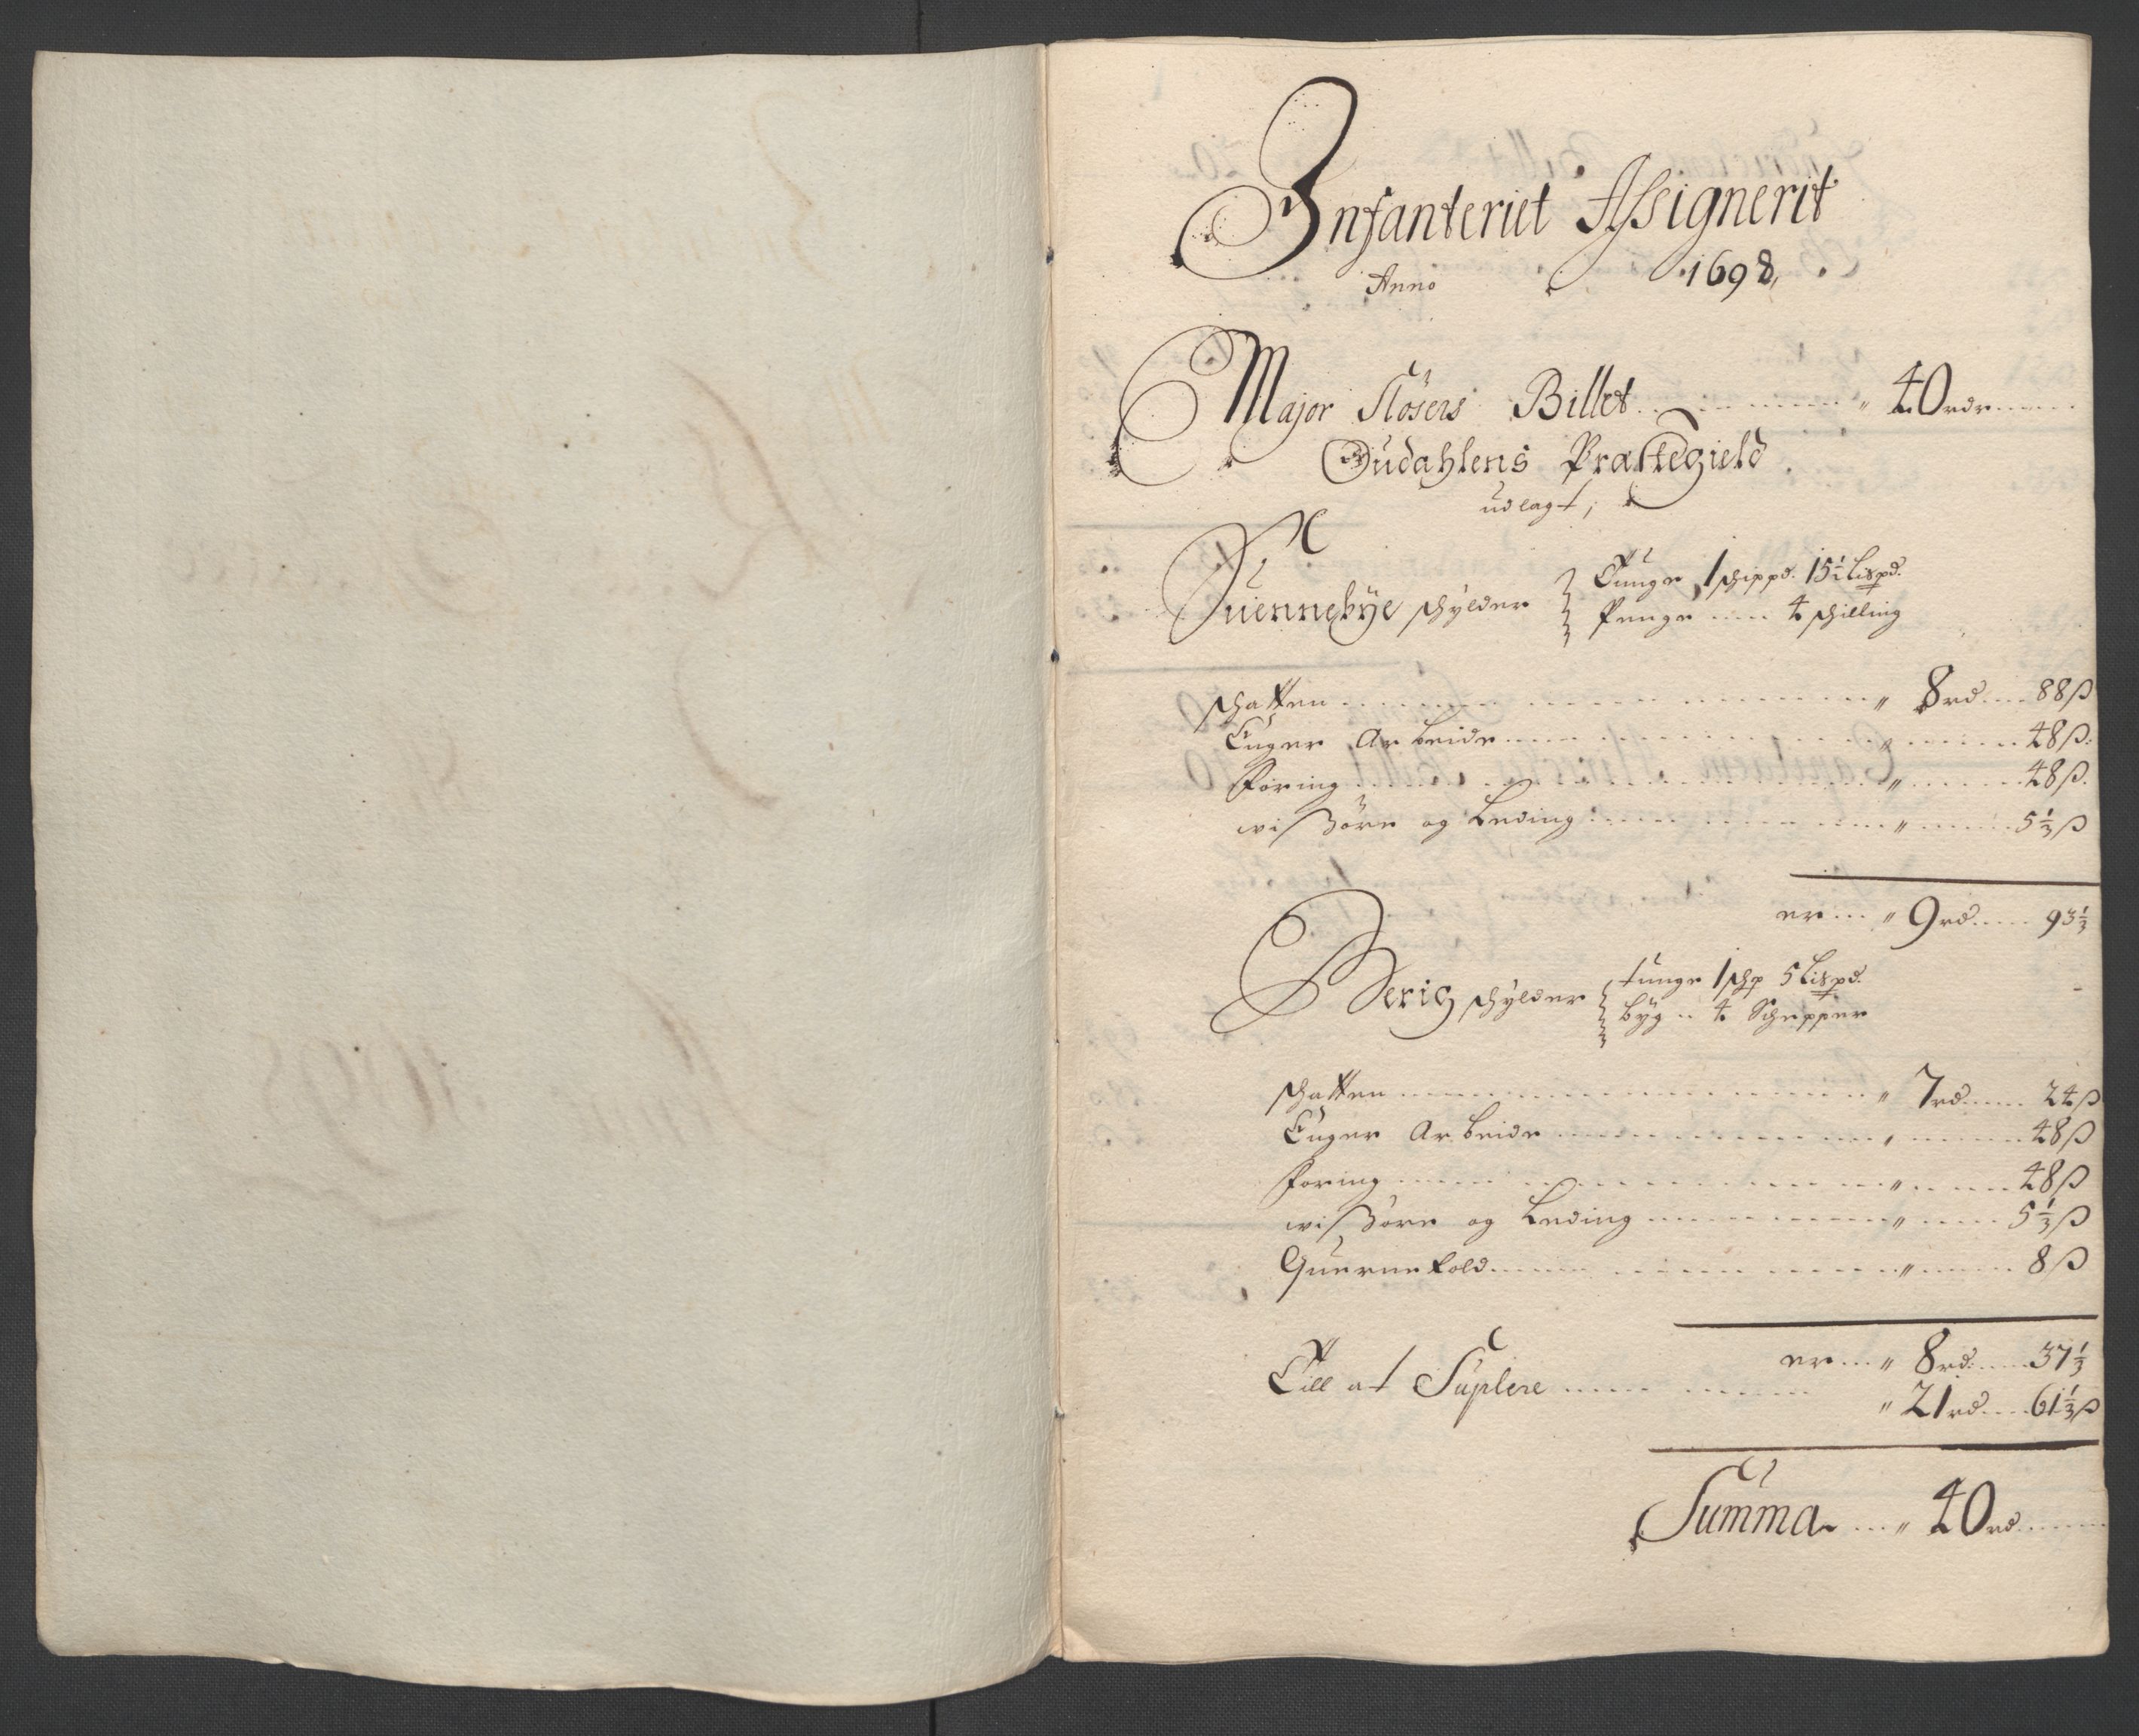 Infanteriet Assignerit
Anno 1698,
Major Slösers Billet „ 40 rdr
Gudahlens Præstegield
udlagt;
Tuennebÿe schÿlder Tunge 1 schippd. 15½ Lispd.
Penge 4 schilling
schatten „ 8 rd 88 ß
Leger Arbeide „ 48 ß:
Foring „ 48 ß.
wissöre og Leding „ 5⅓ ß
er „ 9 rd 93⅓
Berig schÿlder tunge 1 schp 5 Lispd.
bÿg 4 Schepper
schatten „ 7 rd 24 ß
Leger Arbeide „ 48 ß
Foring „ 48 ß
wissöre og Leding „ 5⅓ ß
Quernetold „ 8 ß
er „ 8 rd: 37⅓
Till at Suplere „ 21 rd 61⅓ ß
Summa „ 40 rd